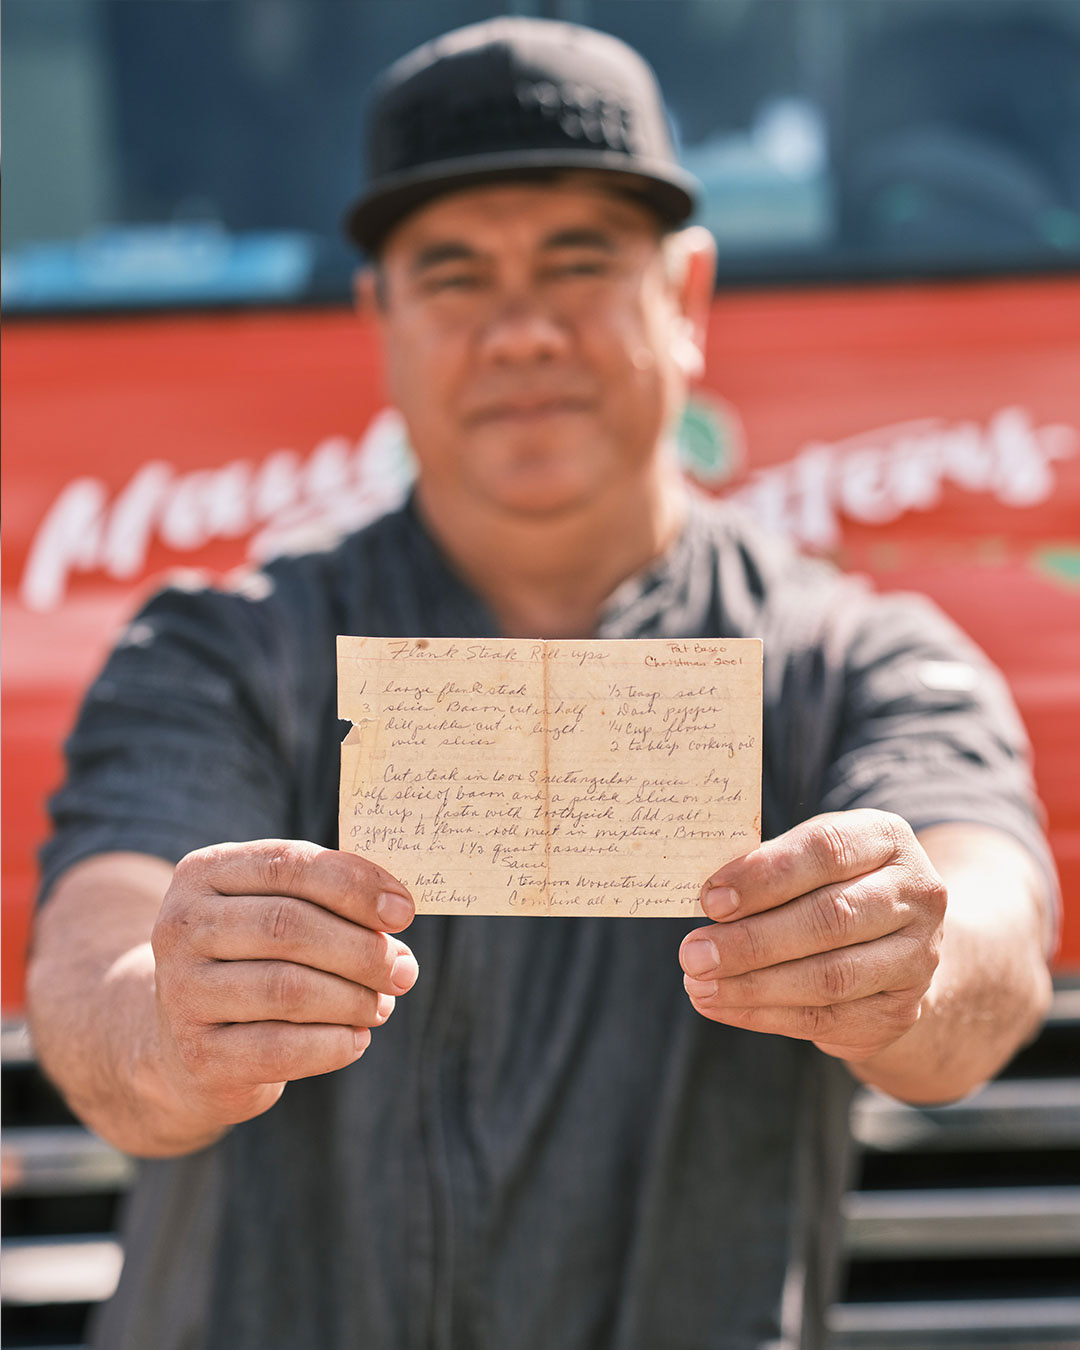 Flank Steak Roll-ups
Pat Basco
Christmas 2001
1 large flank steak
3 slices Bacon, cut in half
dill pickles cut in length-
wise slices
1/3 teasp salt
Dash pepper
1/4 cup flour
2 tablesp cooking oil
Cut steak in 6 or 8 rectangular pieces. Lay
half slice of bacon and a pickle slice on each.
Roll up, fasten with toothpick. Add salt +
Pepper to flour. roll meat in mixture. Brown in
oil. Place in 1 1/2 quart casserole.
Sauce
Water
Ketchup
1 teaspoon Worcestershire
Combine all + pour